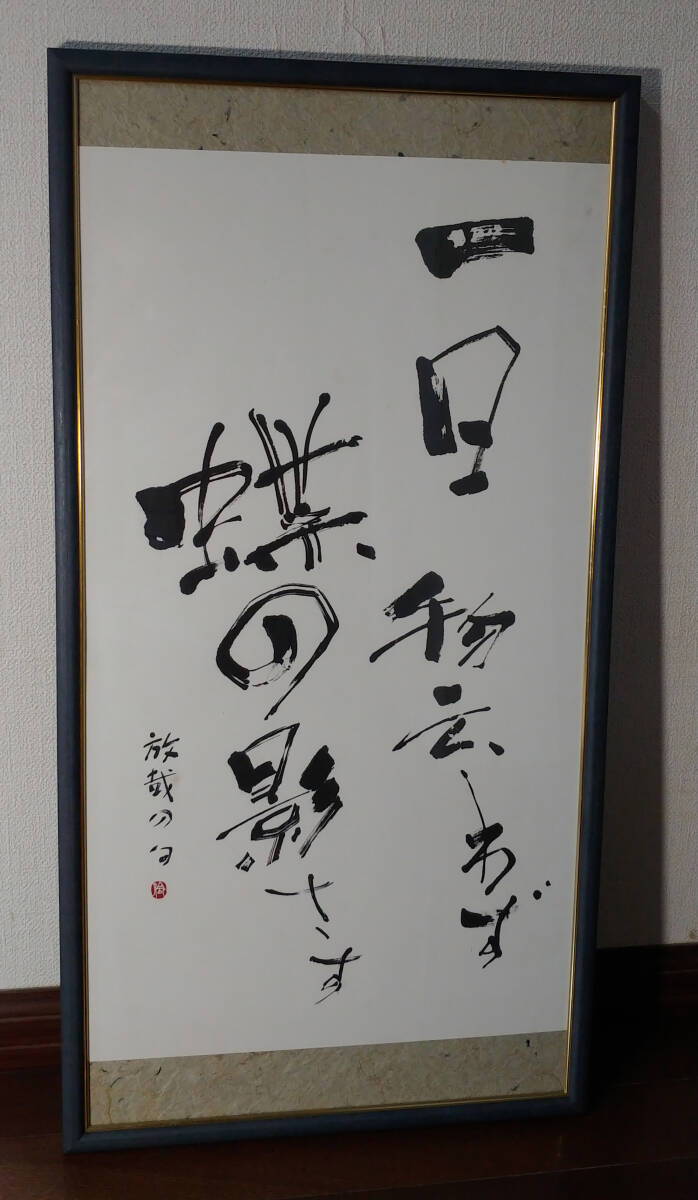 一日 物云はず
蝶の影さす
放哉の句